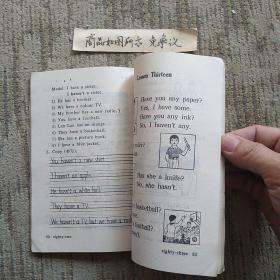 商品如图所示 免争议
Model: I have a sister.
I haven't a sister.
1) He has a brother.
2) We have a colour TV.
3) My brother has a new radio.
4) You have a football.
5) Lan Lan has an orange.
6) They have a basketball.
7) She has a picture book.
8) I have a blue jacket.
2. Copy
You haven't a new shirt
I haven't an apple.
He hasn't a white ball.
They have a TV.
We haven't a TV, but we have a
eighty-two
Lesson Thirteen
Have you any paper?
Yes, I have some.
Have you any ink?
No, I haven't any.
Has she a knife?
No, she hasn't.
basketball?
have.
eighty-three 83